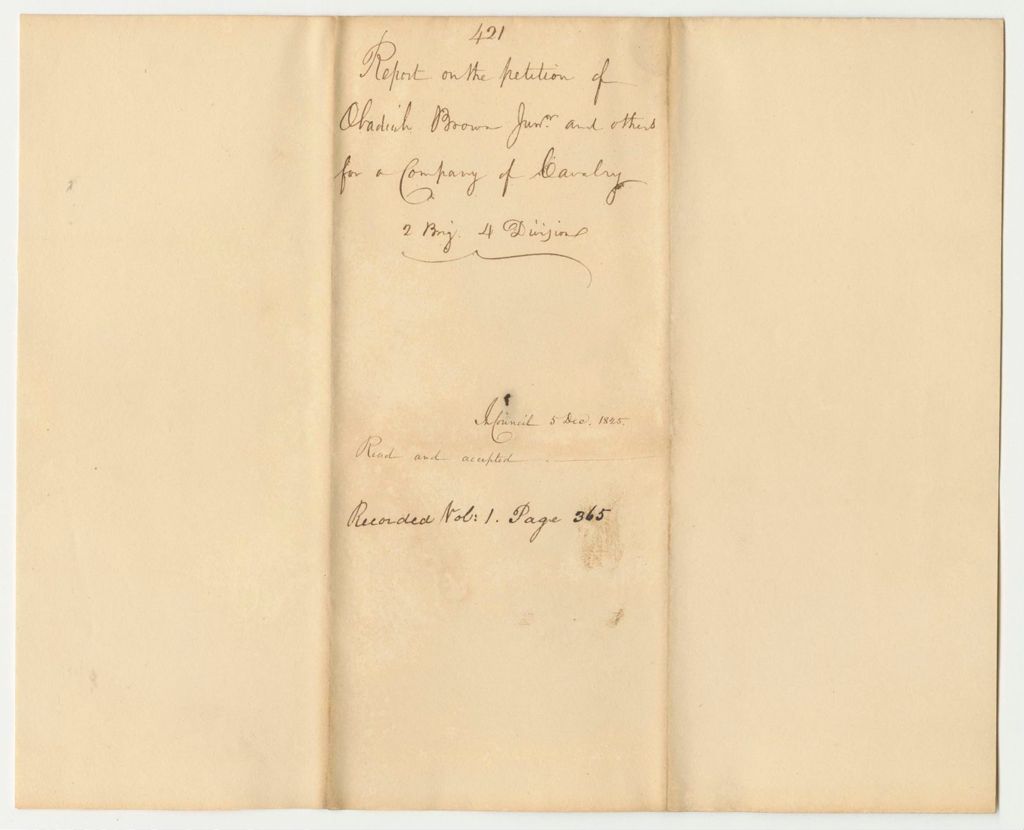 421
Report on the petition of
Obadiah Brown Junr. and others
for a Company of Cavalry
2 Brig. 4 Division
In Council 5 Dec. 1825.
Read and accepted
Recorded Vol: 1. Page 365